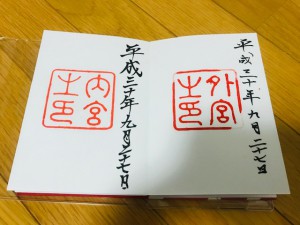 平成三十年九月二十七日
外宮
之印
平成三十年九月二十七日
内宮
之印